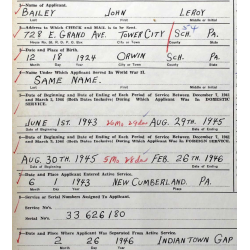 1. Name of Applicant.
BAILEY JOHN LEROY
Last First Middle or Initial
2. Address to Which Check and MAIL is to be Sent.
728 E. GRAND AVE. TOWER CITY SCH. PA.
House No. Street City or Town County State
3. Date and Place of Birth.
12 18 1924 ORWIN SCH. PA.
Month Day Year County State
4. Name Under Which Applicant Served In World War II.
SAME NAME.
Last First Middle or Initial
5. Date of Beginning and Date of Ending of Each Period of Service Between December 7, 1941
and March 2, 1946 (Both Dates Inclusive) During Which Applicant Was In DOMESTIC
SERVICE.
JUNE 1ST. 1943 AUG. 29TH 1945
6. Date of Beginning and Date of Ending of Each Period of Service Between December 7, 1941
and March 2, 1946 (Both Dates Inclusive) During Which Applicant Was In FOREIGN SERVICE.
AUG. 30TH 1945 FEB. 26TH 1946
7. Date and Place Applicant Entered Active Service.
6 1 1943 NEW CUMBERLAND. PA.
Month Day Year Place
8. Service or Serial Numbers Assigned To Applicant.
Service No.
33 626 180
Serial No.
9. Date and Place Where Applicant Was Separated From Active Service.
2 26 1946 INDIANTOWN GAP